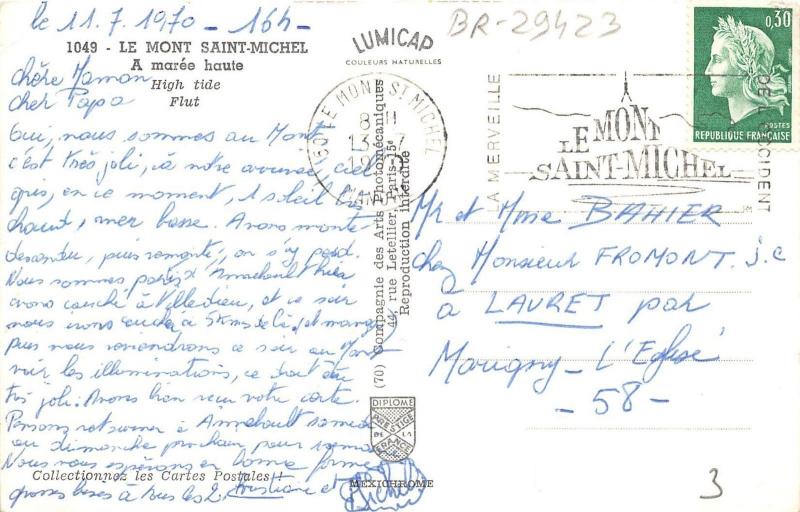 le 11.7.1970 - 16h -
1049 - LE MONT SAINT-MICHEL
A marée haute
High tide
Flut
LUMICAP
COULEURS NATURELLES
BR-29423
0,30
POSTES
REPUBLIQUE FRANÇAISE
LE MONT ST MICHEL
8 H
LA MERVEILLE
LE MONT
SAINT-MICHEL
DE L'OCCIDENT
chère Maman
cher Papa
Oui, nous sommes au Mont
c'est très joli, à notre arrivée, ciel
gris, en ce moment, 1 soleil très
chaud, mer basse. Avons monté
descendu, puis remonté, on s'y perd.
Nous sommes partis d'Annebault hier
avons couché à Villedieu, et ce soir
nous irons coucher à 5 kms de là, et manger
puis nous reviendrons ce soir au Mont
voir les illuminations, ce doit être
très joli. Avons bien reçu votre carte.
Pensons retourner à Annebault samedi
ou dimanche prochain pour
Nous vous espérons en bonne forme
grosses bises à tous les 2, Christiane et
Michel
(70) Compagnie des Arts Photomécaniques
44, rue Letellier, Paris-15e
Reproduction interdite
Mr et Mme BAHIER
chez Monsieur FROMONT J.C
à LAURET par
Marigny - L'Eglise
- 58 -
DIPLOME
PRESTIGE
DE LA
FRANCE
MEXICHROME
Collectionnez les Cartes Postales
3